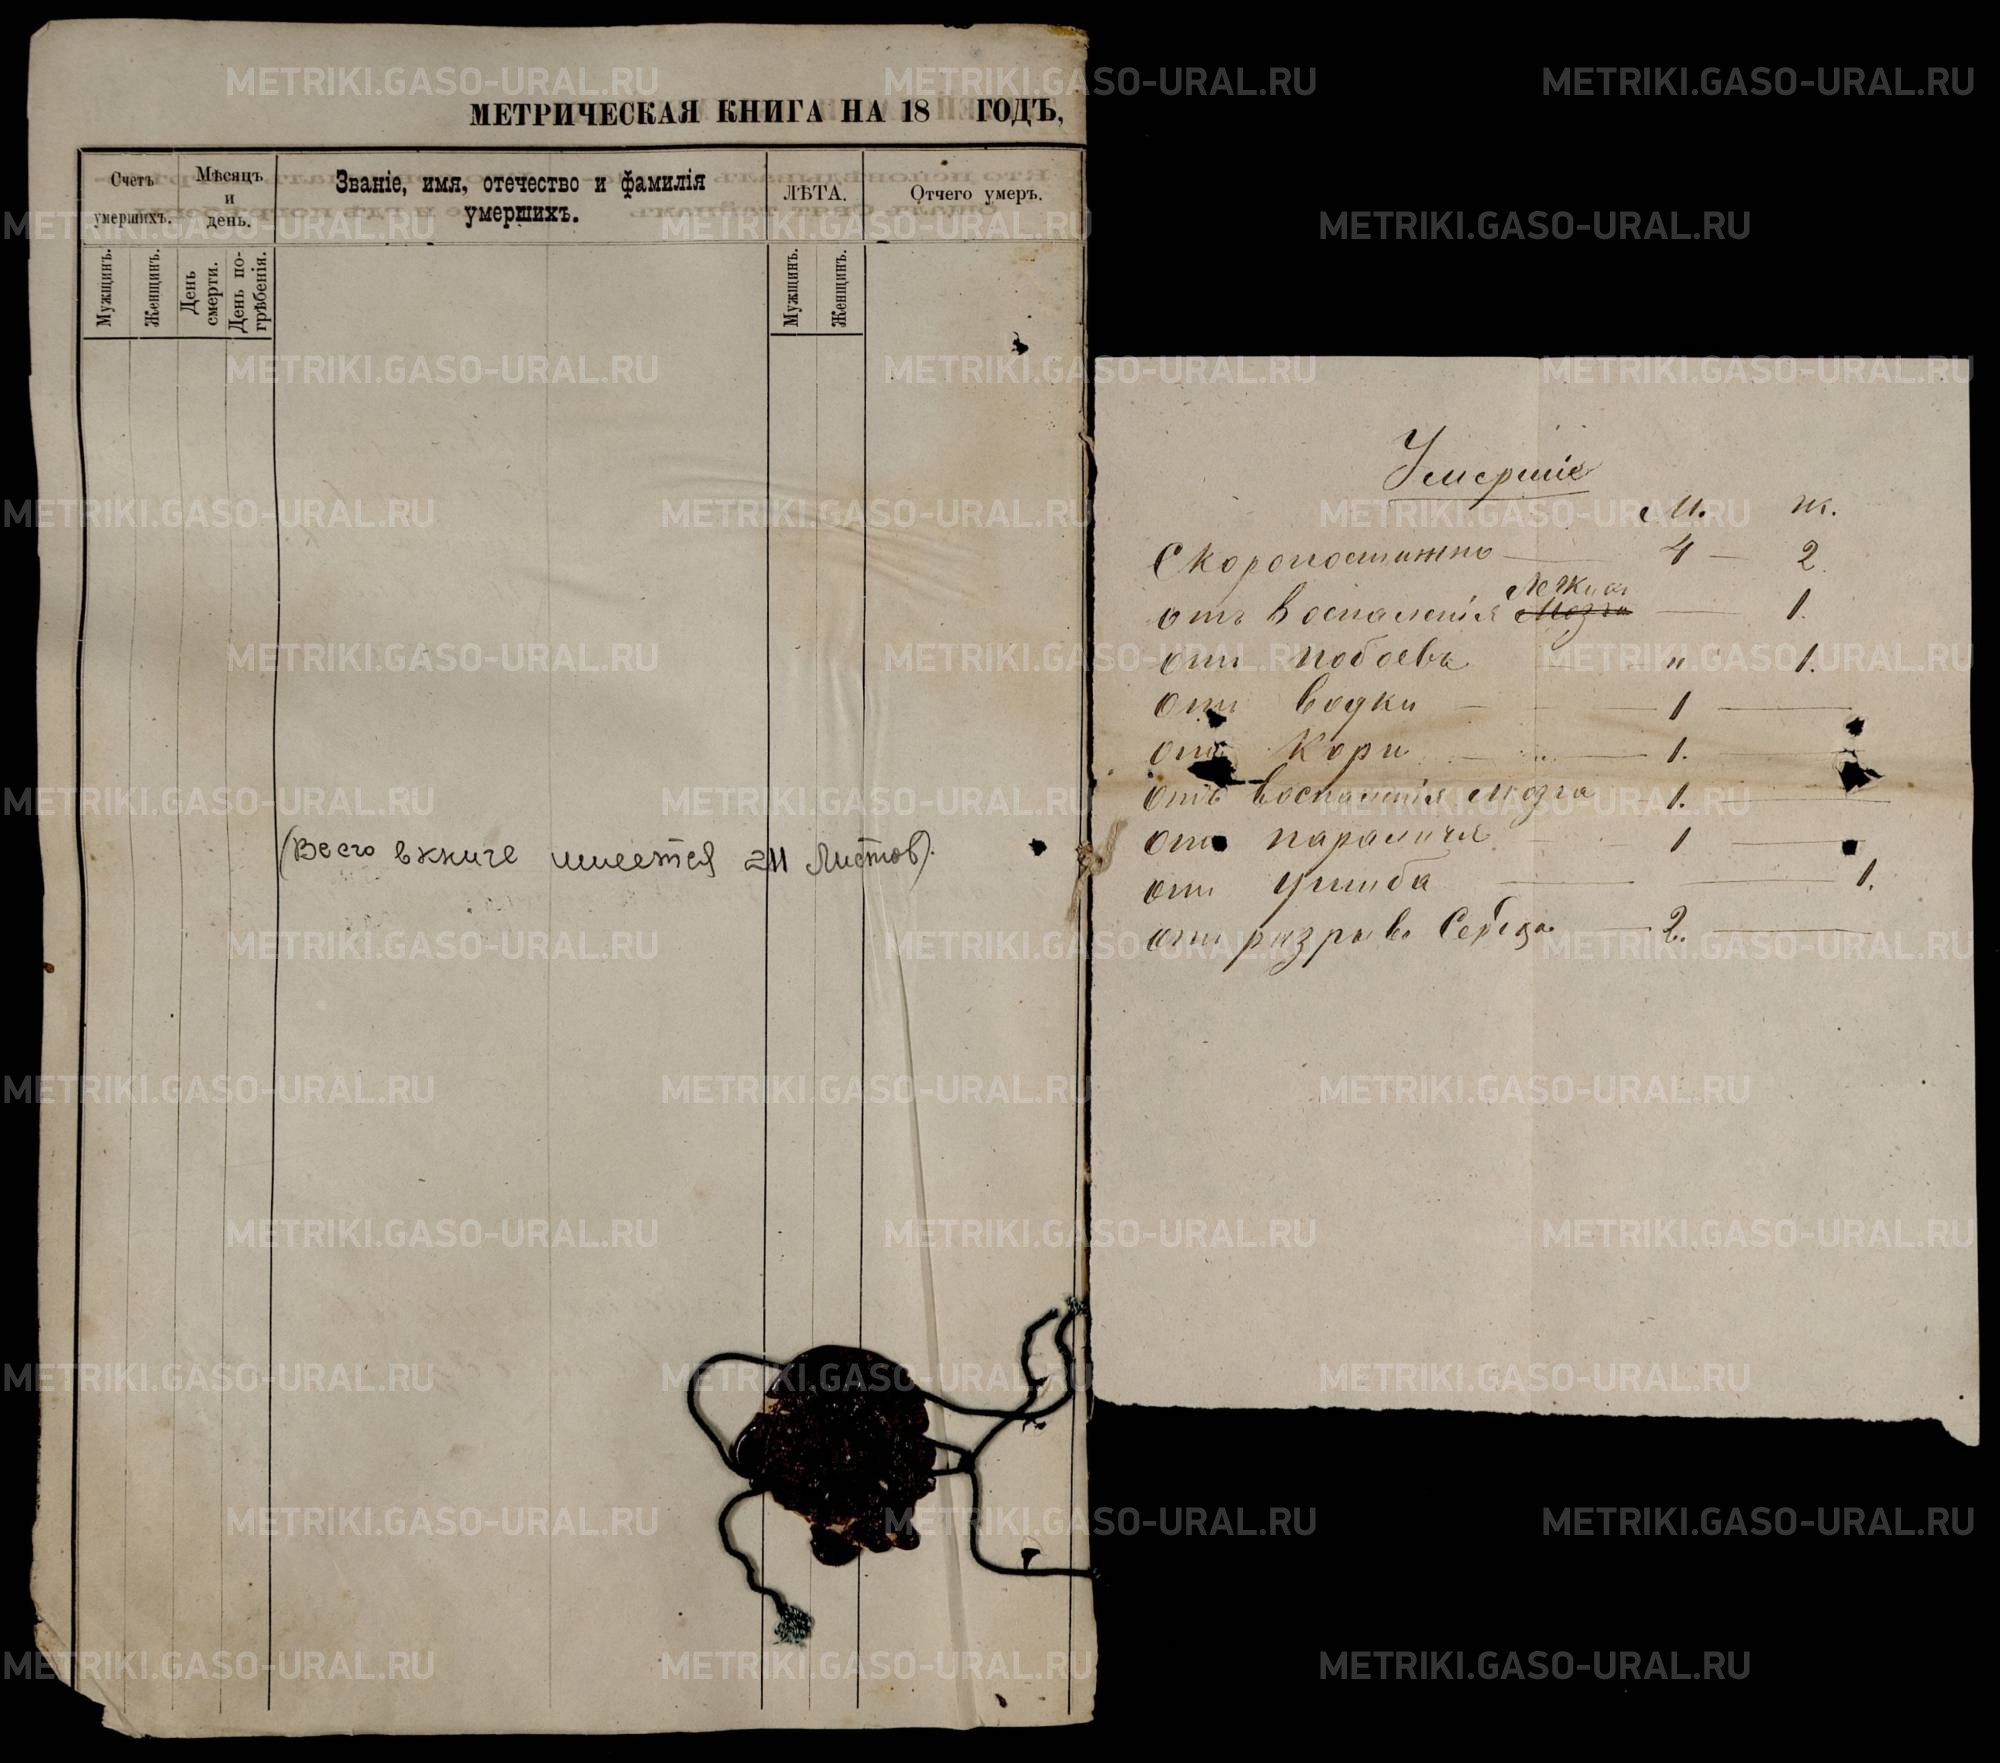 МЕТРИЧЕСКАЯ КНИГА НА 18 ГОДЪ,
Счетъ умершихъ.
Мѣсяцъ и день.
Званіе, имя, отечество и фамилія умершихъ.
ЛѢТА.
Отчего умеръ.
Мужщинъ.
Женщинъ.
День смерти.
День погрѣбенія.
Мужщинъ.
Женщинъ.
(Всего в книге имеется 211 листов).
Умершіе
М. Ж.
Скоропостижно 4 2
отъ воспаленія Мозга Легких 1.
отъ побоевъ " 1.
отъ водки 1
отъ Кори 1.
отъ воспаленія мозга 1.
отъ паралича 1
отъ ушиба 1.
отъ разрыва Сердца 2.
METRIKI.GASO-URAL.RU